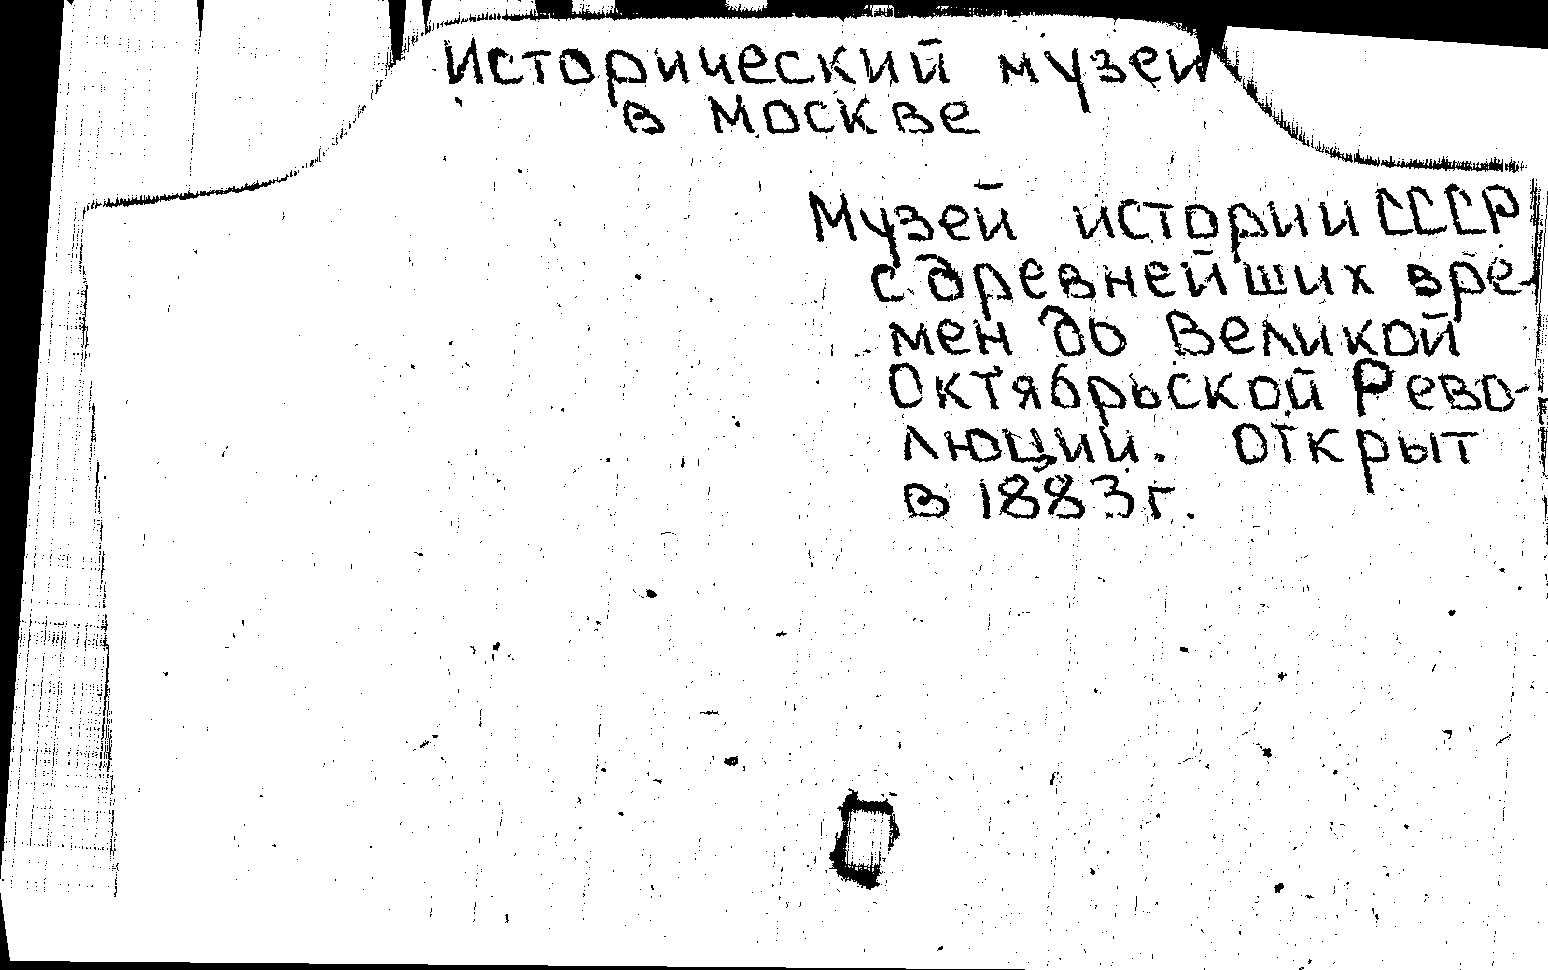 Исторический музей
в Москве
Музей истории СССР
с древнейших вре-
мен до Великой
Октябрьской Рево-
люции. Открыт
в 1883 г.